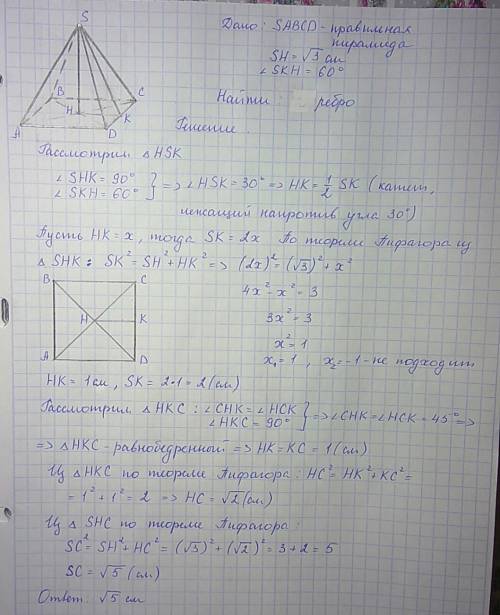 S
Дано: SABCD - правильная
пирамида
SH = √3 см
∠SKH = 60°
B C
H K
A D
Найти: ребро
Решение.
Рассмотрим △HSK
∠SHK = 90°
∠SKH = 60° } => ∠HSK = 30° => HK = 1/2 SK (катет,
лежащий напротив угла 30°)
Пусть HK = x, тогда SK = 2x По теореме Пифагора из
△ SHK: SK² = SH² + HK² => (2x)² = (√3)² + x²
B C
4x² - x² = 3
H K
3x² = 3
x² = 1
A D
x₁ = 1, x₂ = -1 - не подходит
HK = 1 см, SK = 2·1 = 2 (см)
Рассмотрим △HKC: ∠CHK = ∠HCK
∠HKC = 90° } => ∠CHK = ∠HCK = 45° =>
=> △HKC - равнобедренный => HK = KC = 1 (см)
Из △HKC по теореме Пифагора: HC² = HK² + KC² =
= 1² + 1² = 2 => HC = √2 (см)
Из △ SHC по теореме Пифагора:
SC² = SH² + HC² = (√3)² + (√2)² = 3 + 2 = 5
SC = √5 (см)
Ответ: √5 см